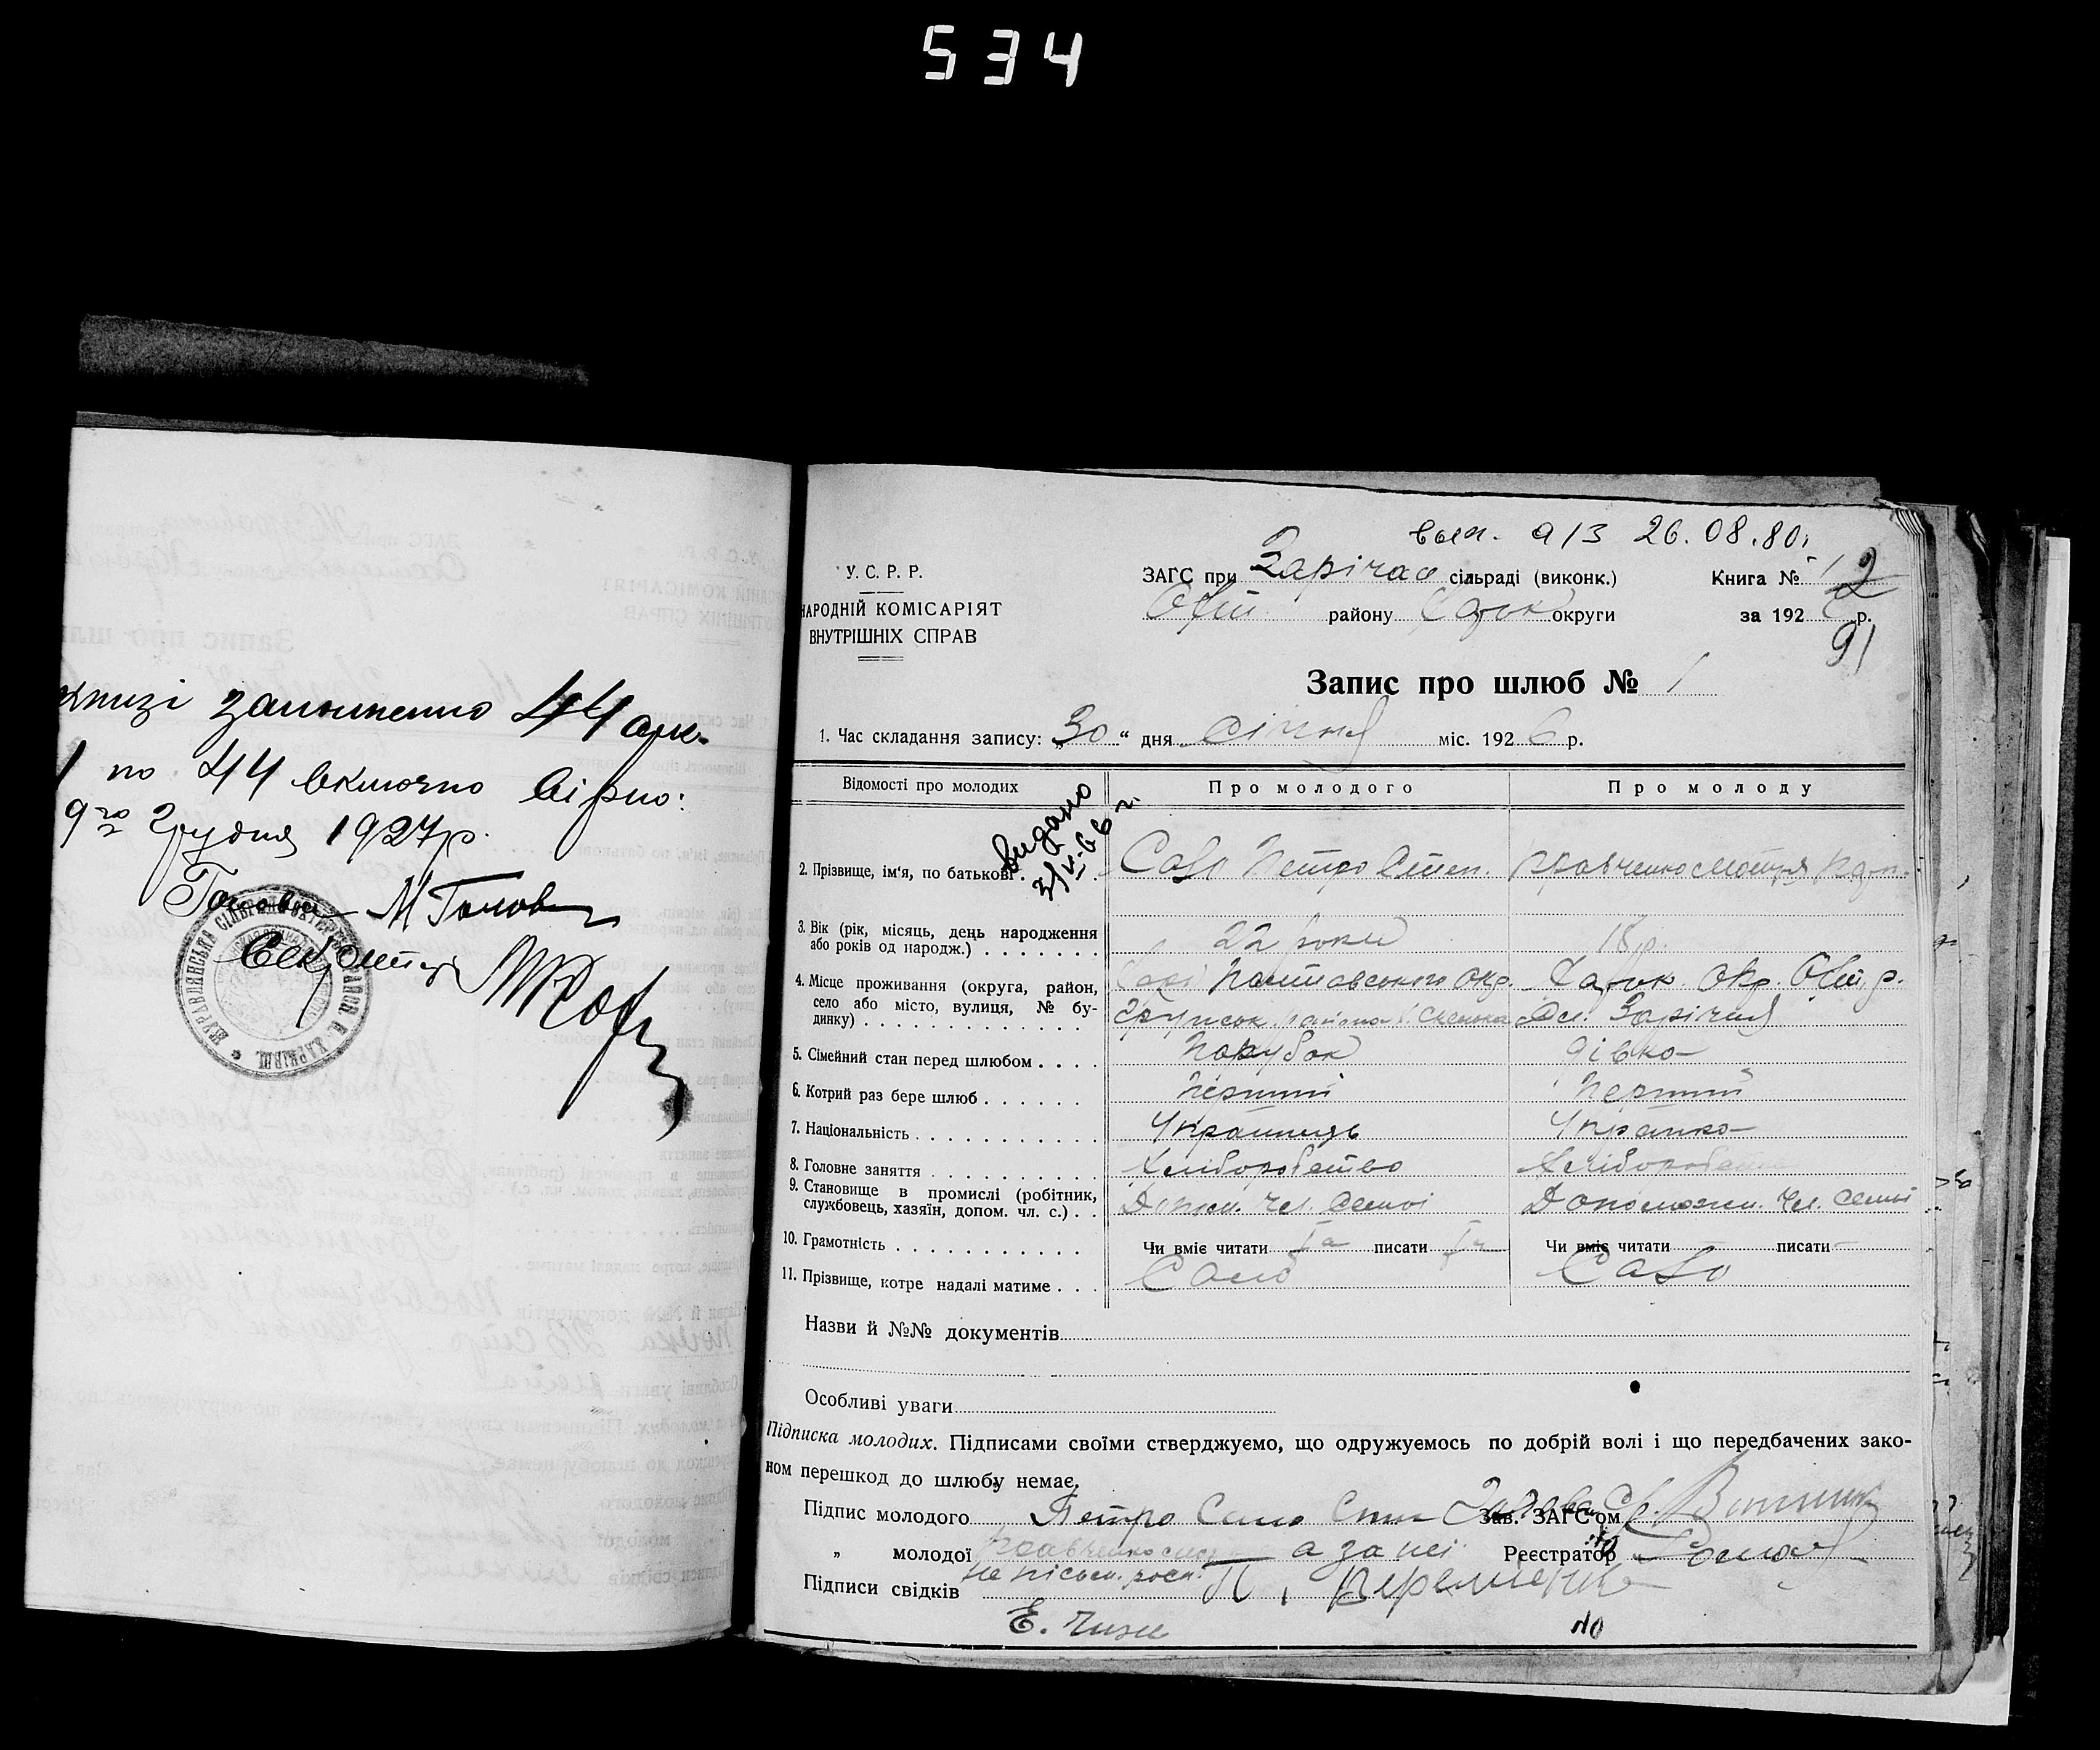 534
книзі заномеренно 44 арк.
1 по 44 включно вірно:
9го грудня 1927 р.
Голова М Голов
Секретарь
вып. а/з 26.08.80г
У. С. Р. Р.
НАРОДНІЙ КОМІСАРІЯТ
ВНУТРІШНІХ СПРАВ
ЗАГС при Заріч сільраді (виконк.)
району Харьк округи
Книга № 12
за 1926 р.
91
Запис про шлюб № 1
1. Час складання запису: „30“ дня Січня міс. 1926 р.
Відомості про молодих
Про молодого
Про молоду
видано
31/V-66 г.
2. Прізвище, ім'я, по батькові
Само Петро Степ.
Кравченко Мотря
3. Вік (рік, місяць, день народження або років од народж.)
22 роки
18 р.
4. Місце проживання (округа, район, село або місто, вулиця, № будинку)
Полтавського Окр.
району
Харьк. Окр.
Зарічня
5. Сімейний стан перед шлюбом
Парубок
дівка
6. Котрий раз бере шлюб
Перший
Перший
7. Національність
Українець
Українка
8. Головне заняття
Хліборобство
Хлібороб
9. Становище в промислі (робітник, службовець, хазяїн, допом. чл. с.)
Допом. чл. семьі
Допоможн. чл. семьі
10. Грамотність
Чи вміє читати Та писати Та
Чи вміє читати — писати —
11. Прізвище, котре надалі матиме
Само
Само
Назви й №№ документів
Особливі уваги
Підписка молодих. Підписами своїми стверджуємо, що одружуємось по добрій волі і що передбачених зако-
ном перешкод до шлюбу немає.
Підпис молодого Петро Само
Зав. ЗАГС'ом
„ молодої Кравченко а за неї
Реєстратор
не письм. росп.
Підписи свідків П. Веремієнко
Е. Чиж